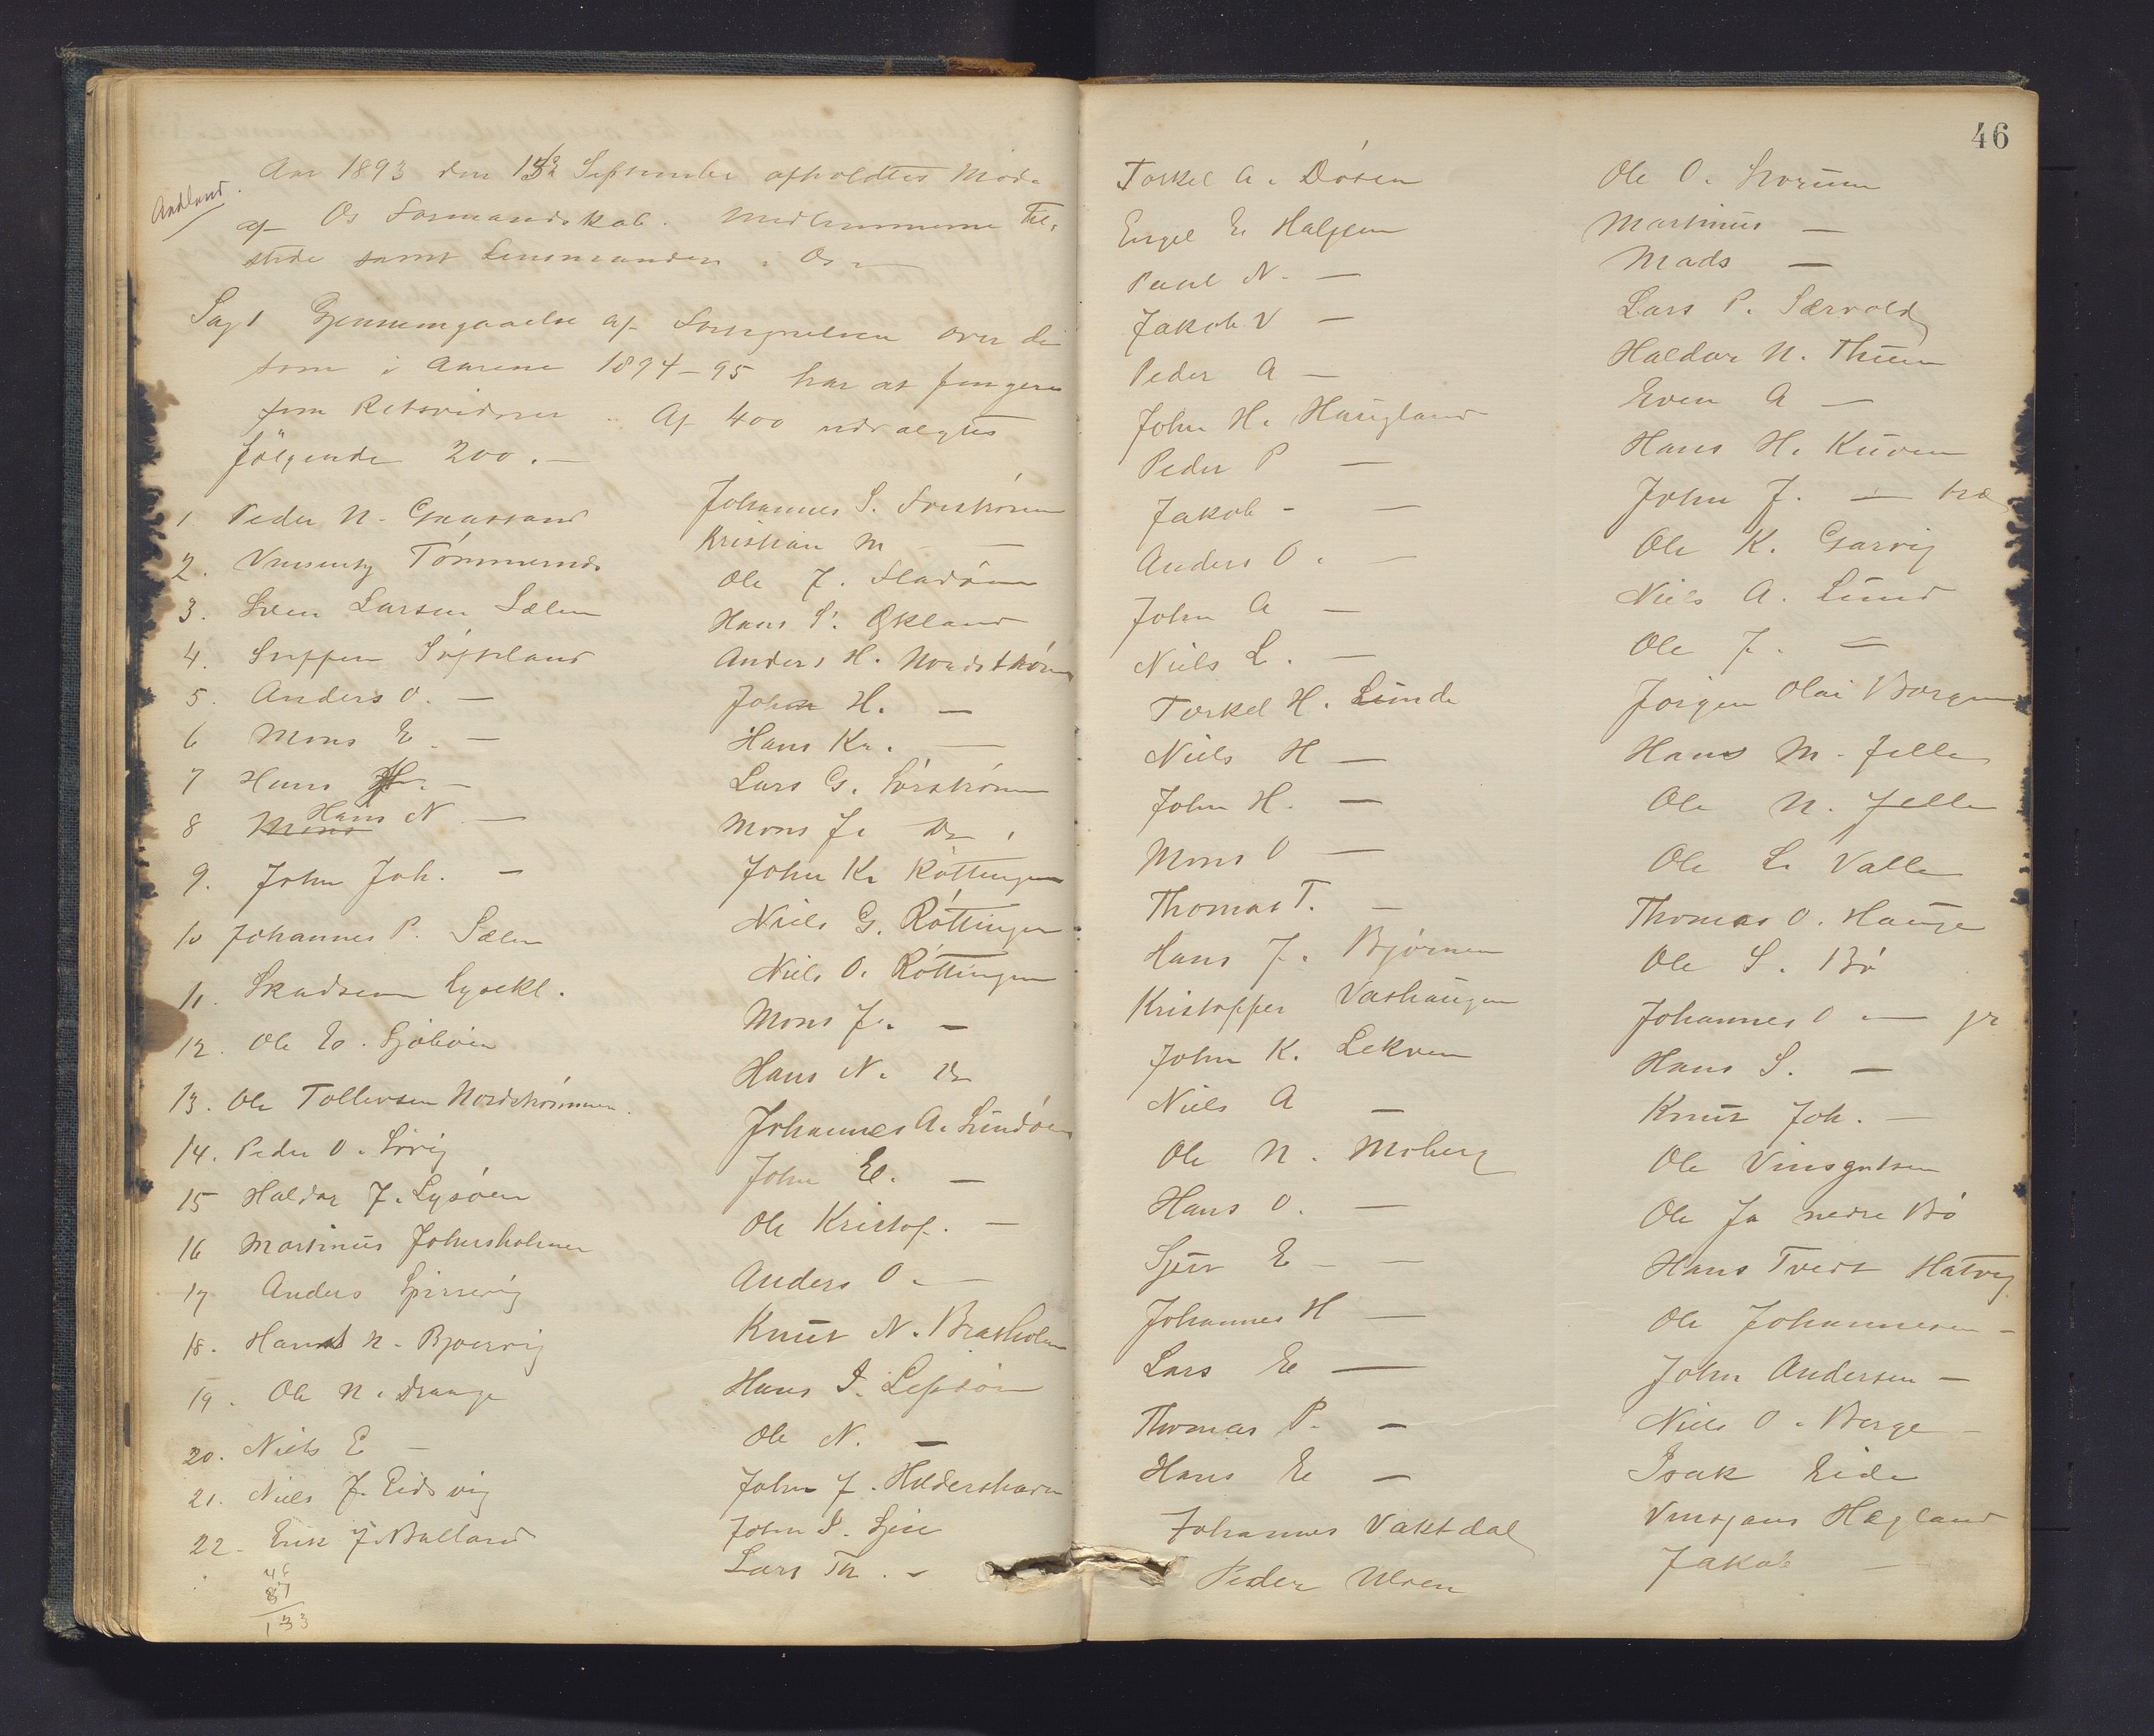 46
Aar 1893 den September afholdtes Møde
af Os Formandskab. Medlemmerne Til-
stede samt Lensmanden i Os
Sag 1 Gjennemgaaelse af Fortegnelsen over de
som i Aarene 1894-95 har at fungere
som Retsvidner. Af 400 udvalgtes
følgende 200.-
1. Peder N.
2. Tømmernes
3. Sven Larsen Sælen
4. Søfteland
5. Anders O. —
6 Mons E. —
7 Hans —
8 Hans N —
9. John Joh. —
10 Johannes P. Sælen
11. Skadsem Lysekl.
12. Ole
13. Ole Tollevsen Nordstrømmen.
14. Peder O.
15 Haldor J. Lysøen
16 Martinus
17 Anders
18. N. Bjørvig
19. Ole N. Drange
20. Niels E —
21. Niels J. Eidsvig
22. Erik J.
46
87
133
Johannes S.
Kristian M —
Ole J.
Hans S. Økland
Anders H. Nordstrøm
John H. —
Hans Kn. —
Lars G. Sørstrøm
Mons J. Do
John K. Røttingen
Niels G. Røttingen
Niels O. Røttingen
Mons J. —
Hans N. Do
Johannes A. Sundøen
John E. —
Ole Kristof. —
Anders O. —
Knut N. Bratholm
Hans I. Lepsøen
Ole N. —
John J.
John I.
Lars Th. —
Torkel A. Døsen
Engel E. Halgjem
Paul N. —
Jakob V —
Peder A —
John H. Haugland
Peder P —
Jakob - —
Anders O. —
John A —
Niels L. —
Torkel H. Lunde
Niels H —
John H. —
Mons O —
Thomas T. —
Hans J. Bjørnen
Kristoffer Vashaugen
John K. Lekven
Niels A —
Ole N. Moberg
Hans O. —
Sjur E —
Johannes H —
Lars E —
Thomas P. —
Hans E —
Johannes Vaktdal
Peder Ulven
Ole O.
Martinus —
Mads —
Lars P. Særvold
Haldor N. Thuen
Even A —
Hans H. Kuven
John J. —
Ole K. Garvig
Niels A. Lund
Ole J. —
Jørgen Olai Borgen
Hans M. Jelle
Ole N. Jelle
Ole L. Valle
Thomas O. Hauge
Ole S. Bø
Johannes O — jr
Hans S. —
Knut Joh. —
Ole Vinsentsen
Ole Ja nedre Bø
Hans Tvedt Hatvig
Ole Johannesen —
John Andersen —
Niels O. Borge
Isak Eide
Hegland
Jakob —